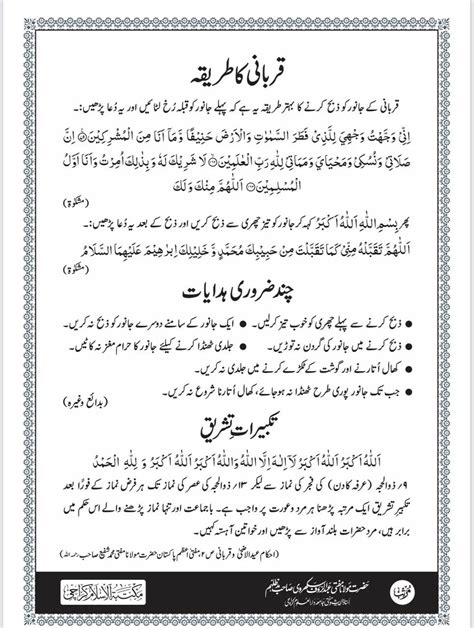 قربانی کا طریقہ
قربانی کے جانور کو ذبح کرنے کا بہتر طریقہ یہ ہے کہ پہلے جانور کو قبلہ رُخ لٹائیں اور یہ دُعا پڑھیں:۔
اِنِّیْ وَجَّهْتُ وَجْهِیَ لِلَّذِیْ فَطَرَ السَّمٰوٰتِ وَالْاَرْضَ حَنِیْفًا وَّمَآ اَنَا مِنَ الْمُشْرِکِیْنَ ۝ اِنَّ
صَلَاتِیْ وَنُسُکِیْ وَمَحْیَایَ وَمَمَاتِیْ لِلّٰهِ رَبِّ الْعٰلَمِیْنَ ۝ لَا شَرِیْکَ لَهٗ وَبِذٰلِکَ اُمِرْتُ وَاَنَا اَوَّلُ
الْمُسْلِمِیْنَ ۝ اَللّٰهُمَّ مِنْکَ وَلَکَ
(مشکوٰة)
پھر بِسْمِ اللّٰهِ اَللّٰهُ اَکْبَرُ کہہ کر جانور کو تیز چھری سے ذبح کریں اور ذبح کے بعد یہ دُعا پڑھیں:۔
اَللّٰهُمَّ تَقَبَّلْهُ مِنِّیْ کَمَا تَقَبَّلْتَ مِنْ حَبِیْبِکَ مُحَمَّدٍ وَّ خَلِیْلِکَ اِبْرٰهِیْمَ عَلَیْهِمَا السَّلَامُ
(مشکوٰة)
چند ضروری ہدایات
● ذبح کرنے سے پہلے چھری کو خوب تیز کرلیں۔ ● ایک جانور کے سامنے دوسرے جانور کو ذبح نہ کریں۔
● ذبح کرنے میں جانور کی گردن نہ توڑیں۔ ● جلدی ٹھنڈا کرنے کیلئے جانور کا حرام مغز نہ کاٹیں۔
● کھال اُتارنے اور گوشت کے ٹکڑے کرنے میں جلدی نہ کریں۔
● جب تک جانور پوری طرح ٹھنڈا نہ ہوجائے، کھال اُتارنا شروع نہ کریں۔
(بدائع وغیرہ)
تکبیراتِ تشریق
اَللّٰهُ اَکْبَرُ اَللّٰهُ اَکْبَرُ لَآ اِلٰهَ اِلَّا اللّٰهُ وَاللّٰهُ اَکْبَرُ اَللّٰهُ اَکْبَرُ وَ لِلّٰهِ الْحَمْدُ
۹؍ ذوالحجہ (عرفہ کا دن) کی فجر کی نماز سے لیکر ۱۳؍ ذوالحجہ کی عصر کی نماز تک ہر فرض نماز کے بعد
تکبیر تشریق ایک مرتبہ پڑھنا ہر مرد و عورت پر واجب ہے۔ با جماعت اور تنہا نماز پڑھنے والے اس حکم میں
برابر ہیں، مرد حضرات بلند آواز سے پڑھیں اور خواتین آہستہ کہیں۔
(احکام عید الاضحیٰ و قربانی ص ۲ مفتی اعظم پاکستان حضرت مولانا مفتی محمد شفیع صاحب رحمہ اللہ)
حضرت مولانا مفتی عبدالرؤف سکھروی صاحب مدظلہم
مکتبۃ الاسلام کراچی